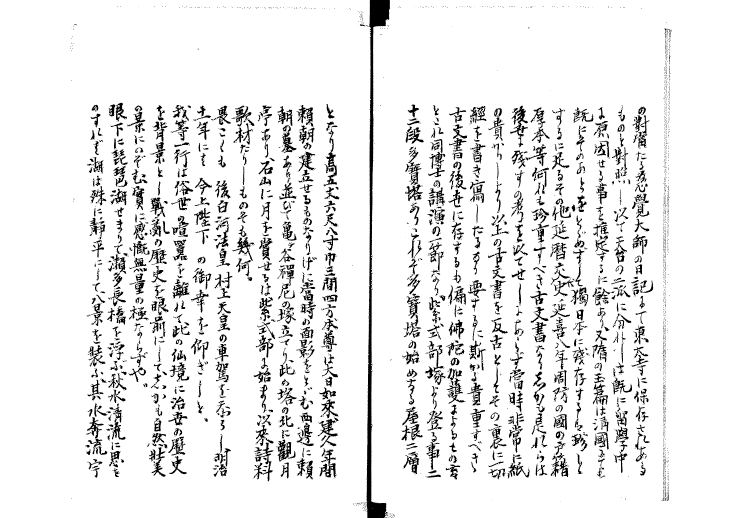 の對膺たる慈覺大師の日記にて東大寺に保存されある
ものと對照し以て天台の二派に分れしは既に留學中
に原因せる事を推定するに餘あり又隋の玉篇は淸國にても
既にそのあとをとゞめずして獨日本に殘存するも珍しと
するに足るその他延曆交史、延喜八年周防の國の戸籍
原本等何れも珍重すべき古文書なりしかも是れらは
後世に殘すの考を以てせしにあらず當時非常に紙
の貴かりしより以上の古文書を反古としその裏に一切
經を書き寫したるなり要するに斯かる貴重すべき
古文書の後世に存するも偏に佛陀の加護によるもの
とこれ同博士の講演の一節なり。紫式部塚より登る事二
十二段多寶塔ありこれぞ多寶塔の始めなる屋根二層
となり高五丈六尺八寸巾三間四方本尊は大日如來建久年間
賴朝の建立せるものなりげに當時の面影をとゞむ西邊に賴
朝の墓あり並びて龜ヶ谷禪尼の塚立てり此の塔の北に觀月
亭あり、石山に月を賞せるは紫式部に始まり以來詩料
歌材たりしものそも幾何。
畏こくも後白河法皇村上天皇の車駕を奉りし明治
十一年にも今上陛下の御幸を仰ぎしと、
我等一行は俗世の喧囂を離れて此の仙境に治世の歷史
を背景とし戰亂の歷史を眼前にしてしかも自然壯美
の景にのぞむ實に感慨無量の極ならずや。
眼下に琵琶湖せまりて瀨多長橋を浮ぶ秋水淸流に思を
のすれば湖は殊に靜平にして八景を裝ふ其水奔流宇